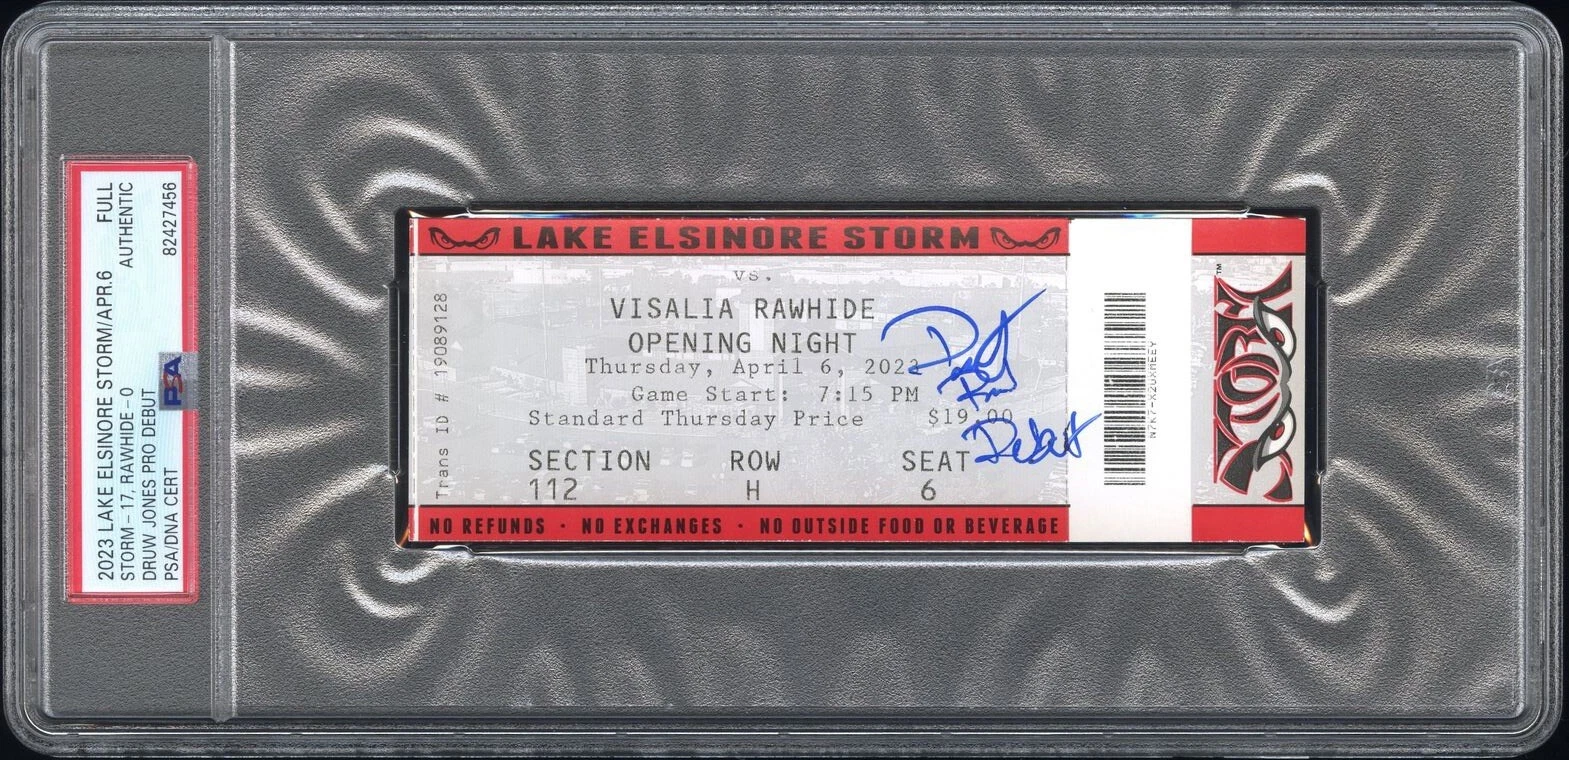 2023 LAKE ELSINORE STORM/APR.6 FULL
STORM - 17, RAWHIDE - 0 AUTHENTIC
DRUW JONES PRO DEBUT
PSA/DNA CERT 82427456
PSA
LAKE ELSINORE STORM
vs.
VISALIA RAWHIDE
OPENING NIGHT
Thursday, April 6, 2023
Game Start: 7:15 PM
Standard Thursday Price $19.00
SECTION ROW SEAT
112 H 6
Trans ID # 19089128
NO REFUNDS · NO EXCHANGES · NO OUTSIDE FOOD OR BEVERAGE
Debut
STORM
TM